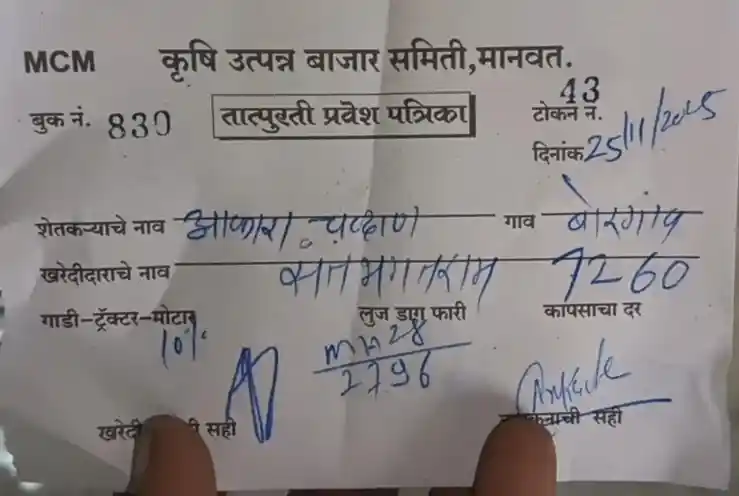 MCM कृषि उत्पन्न बाजार समिती,मानवत.
बुक नं. 830 तात्पुरती प्रवेश पत्रिका टोकन नं. 43
दिनांक 25/11/2025
शेतकऱ्याचे नाव आकाश चव्हाण गाव बोरगांव
खरेदीदाराचे नाव संत भगतराम 7260
गाडी–ट्रॅक्टर–मोटार लुज डाग फारी कापसाचा दर
10% MH 28
2796
खरेदी सही सही